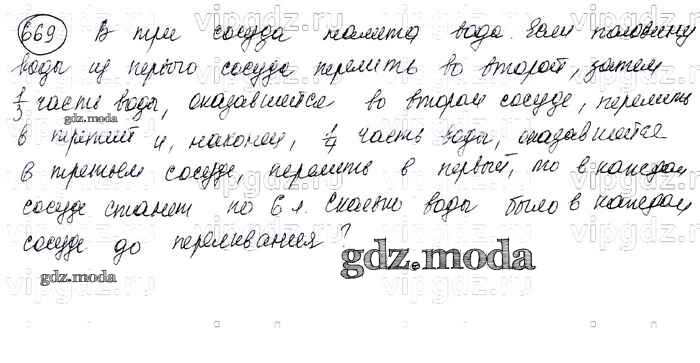 669 В три сосуда налита вода. Если половину
воды из первого сосуда перелить во второй, затем
1/3 часть воды, оказавшейся во втором сосуде, перелить
gdz.moda
в третий и, наконец, 1/4 часть воды, оказавшейся
в третьем сосуде, перелить в первый, то в каждом
сосуде станет по 6 л. Сколько воды было в каждом
сосуде до переливания?
gdz.moda
gdz.moda